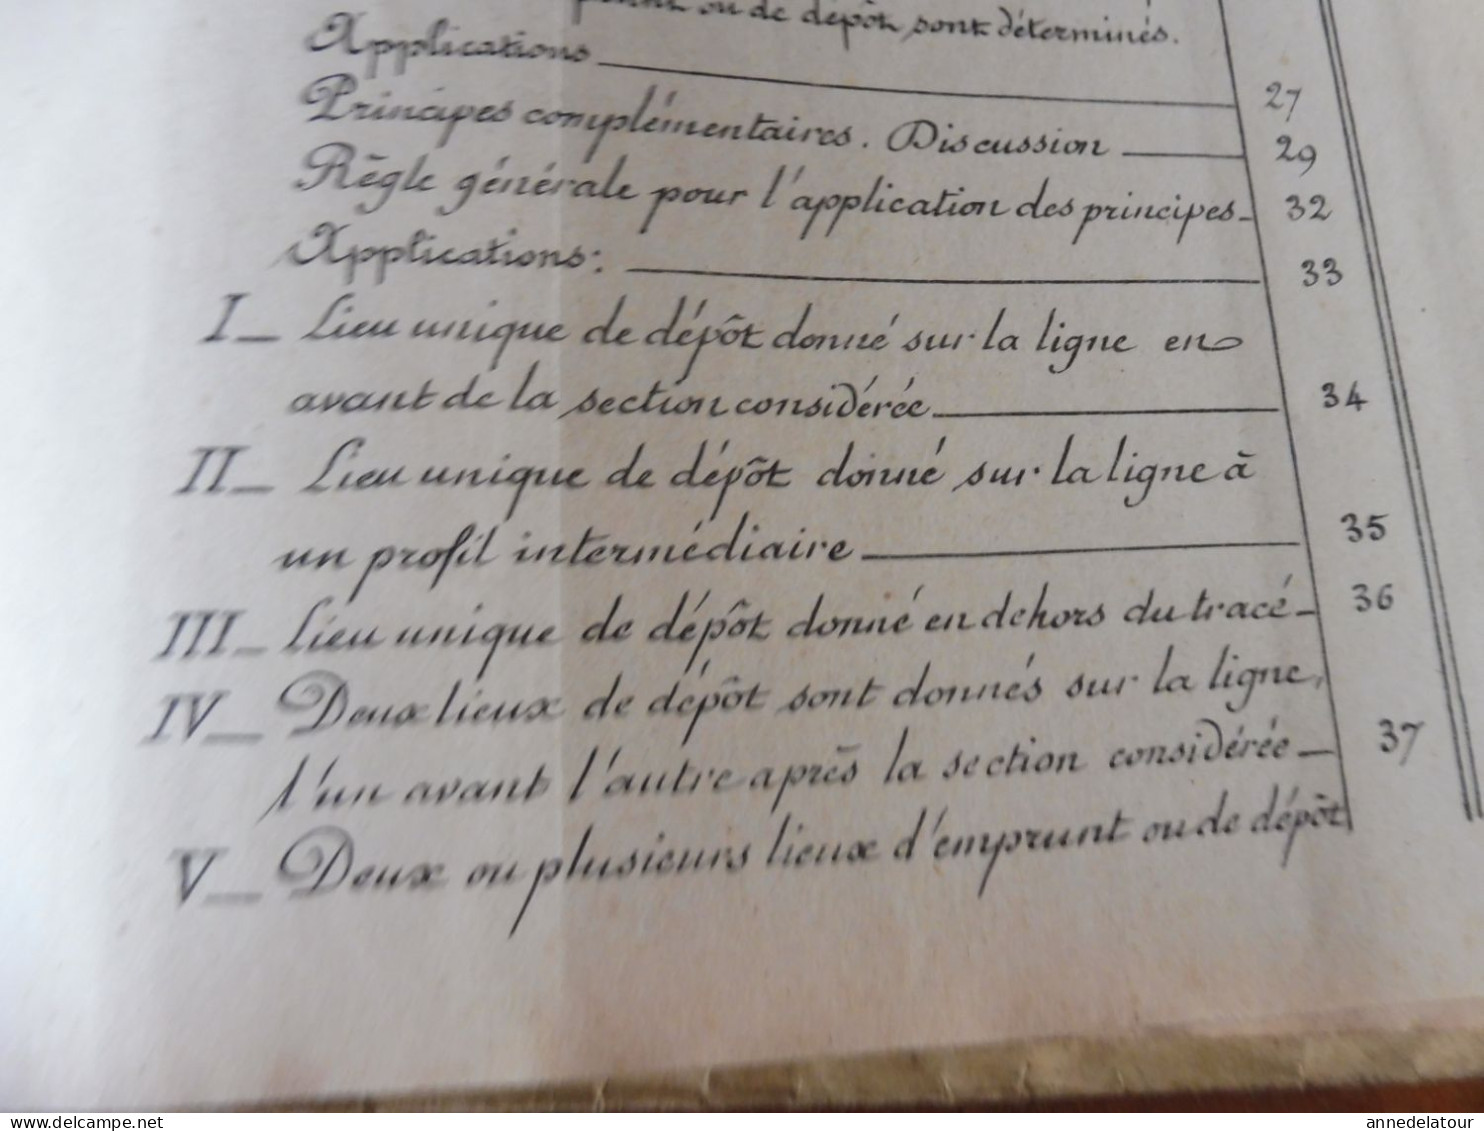 ou de dépôt sont déterminés.
Applications 27
Principes complémentaires. Discussion 29
Règle générale pour l'application des principes 32
Applications: 33
I_ Lieu unique de dépôt donné sur la ligne en
avant de la section considérée 34
II_ Lieu unique de dépôt donné sur la ligne à
un profil intermédiaire 35
III_ Lieu unique de dépôt donné en dehors du tracé 36
IV_ Deux lieux de dépôt sont donnés sur la ligne,
l'un avant l'autre après la section considérée 37
V_ Deux ou plusieurs lieux d'emprunt ou de dépôt
delcampe.net
annedelatour